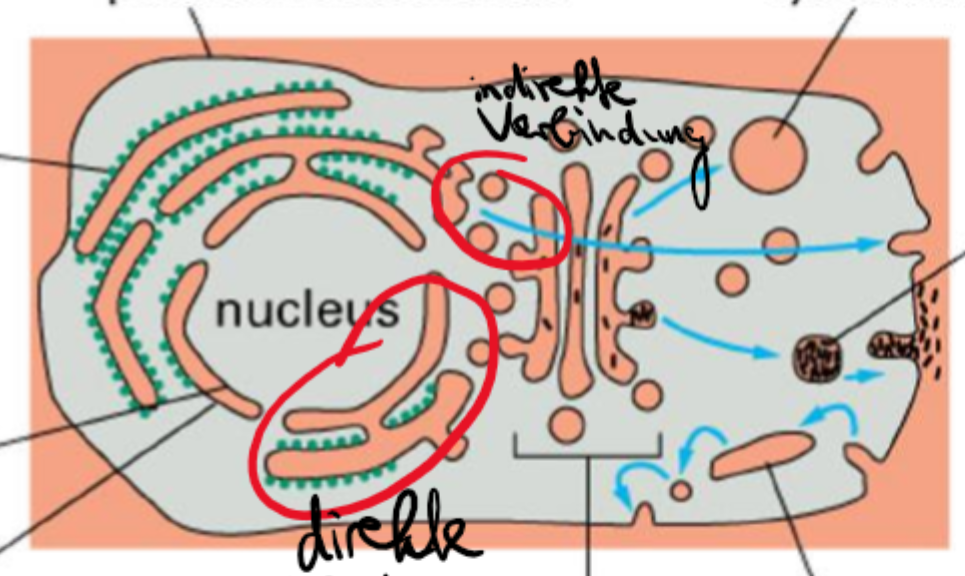 indirekte
Verbindung
nucleus
direkte